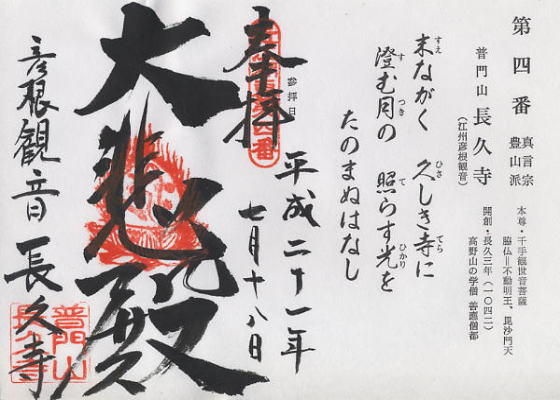 第四番
真言宗
豊山派
普門山 長久寺
(江州彦根観音)
本尊・千手観世音菩薩
脇仏=不動明王、毘沙門天
開創・長久三年(一〇四二)
高野山の学僧 善應僧都
末ながく 久しき寺に
すえ ひさ てら
澄む月の 照らす光を
す つき て ひかり
たのまぬはなし
参拝日
奉拝
平成二十一年
七月十八日
大悲殿
彦根観音 長久寺
普門山
長久寺